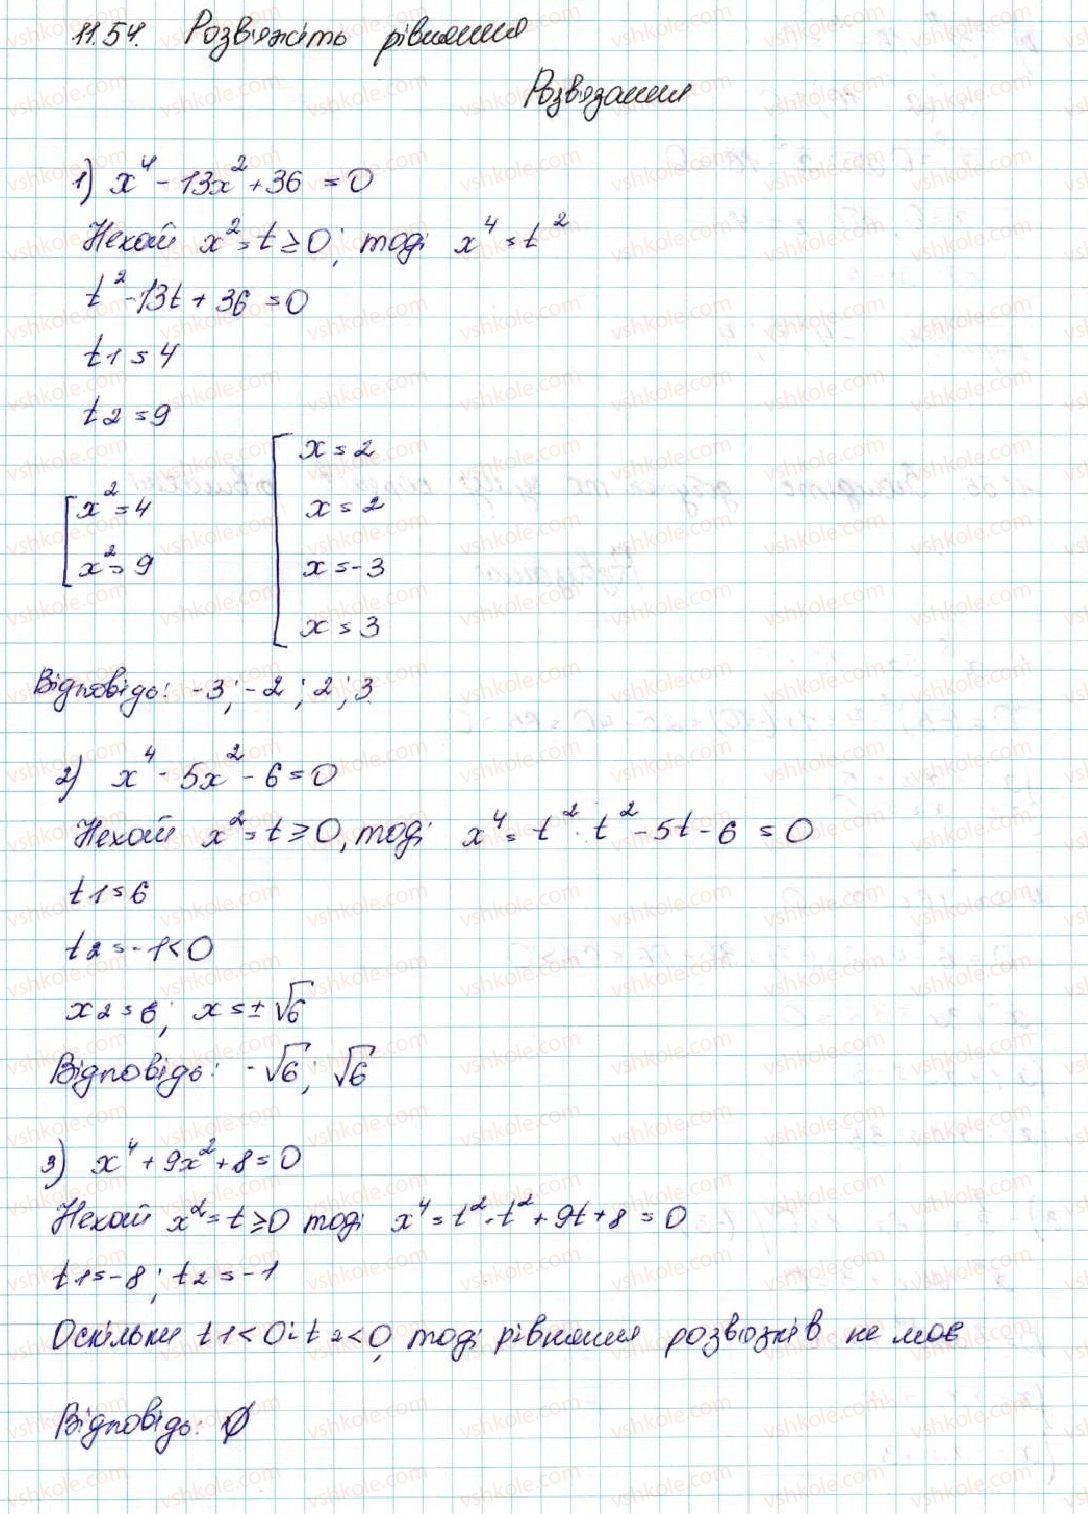 11.54. Розв'яжіть рівняння
Розв'язання
1) x⁴ - 13x² + 36 = 0
Нехай x² = t ≥ 0; тоді x⁴ = t²
t² - 13t + 36 = 0
t1 = 4
t2 = 9
[ x² = 4
x² = 9
[ x = 2
x = 2
x = -3
x = 3
Відповідь: -3; -2; 2; 3.
2) x⁴ - 5x² - 6 = 0
Нехай x² = t ≥ 0, тоді x⁴ = t². t² - 5t - 6 = 0
t1 = 6
t2 = -1 < 0
x2 = 6; x = ±√6
Відповідь: -√6; √6
3) x⁴ + 9x² + 8 = 0
Нехай x² = t ≥ 0 тоді x⁴ = t². t² + 9t + 8 = 0
t1 = -8; t2 = -1
Оскільки t1 < 0 і t2 < 0, тоді рівняння розв'язків не має
Відповідь: Ø
vshkole.com